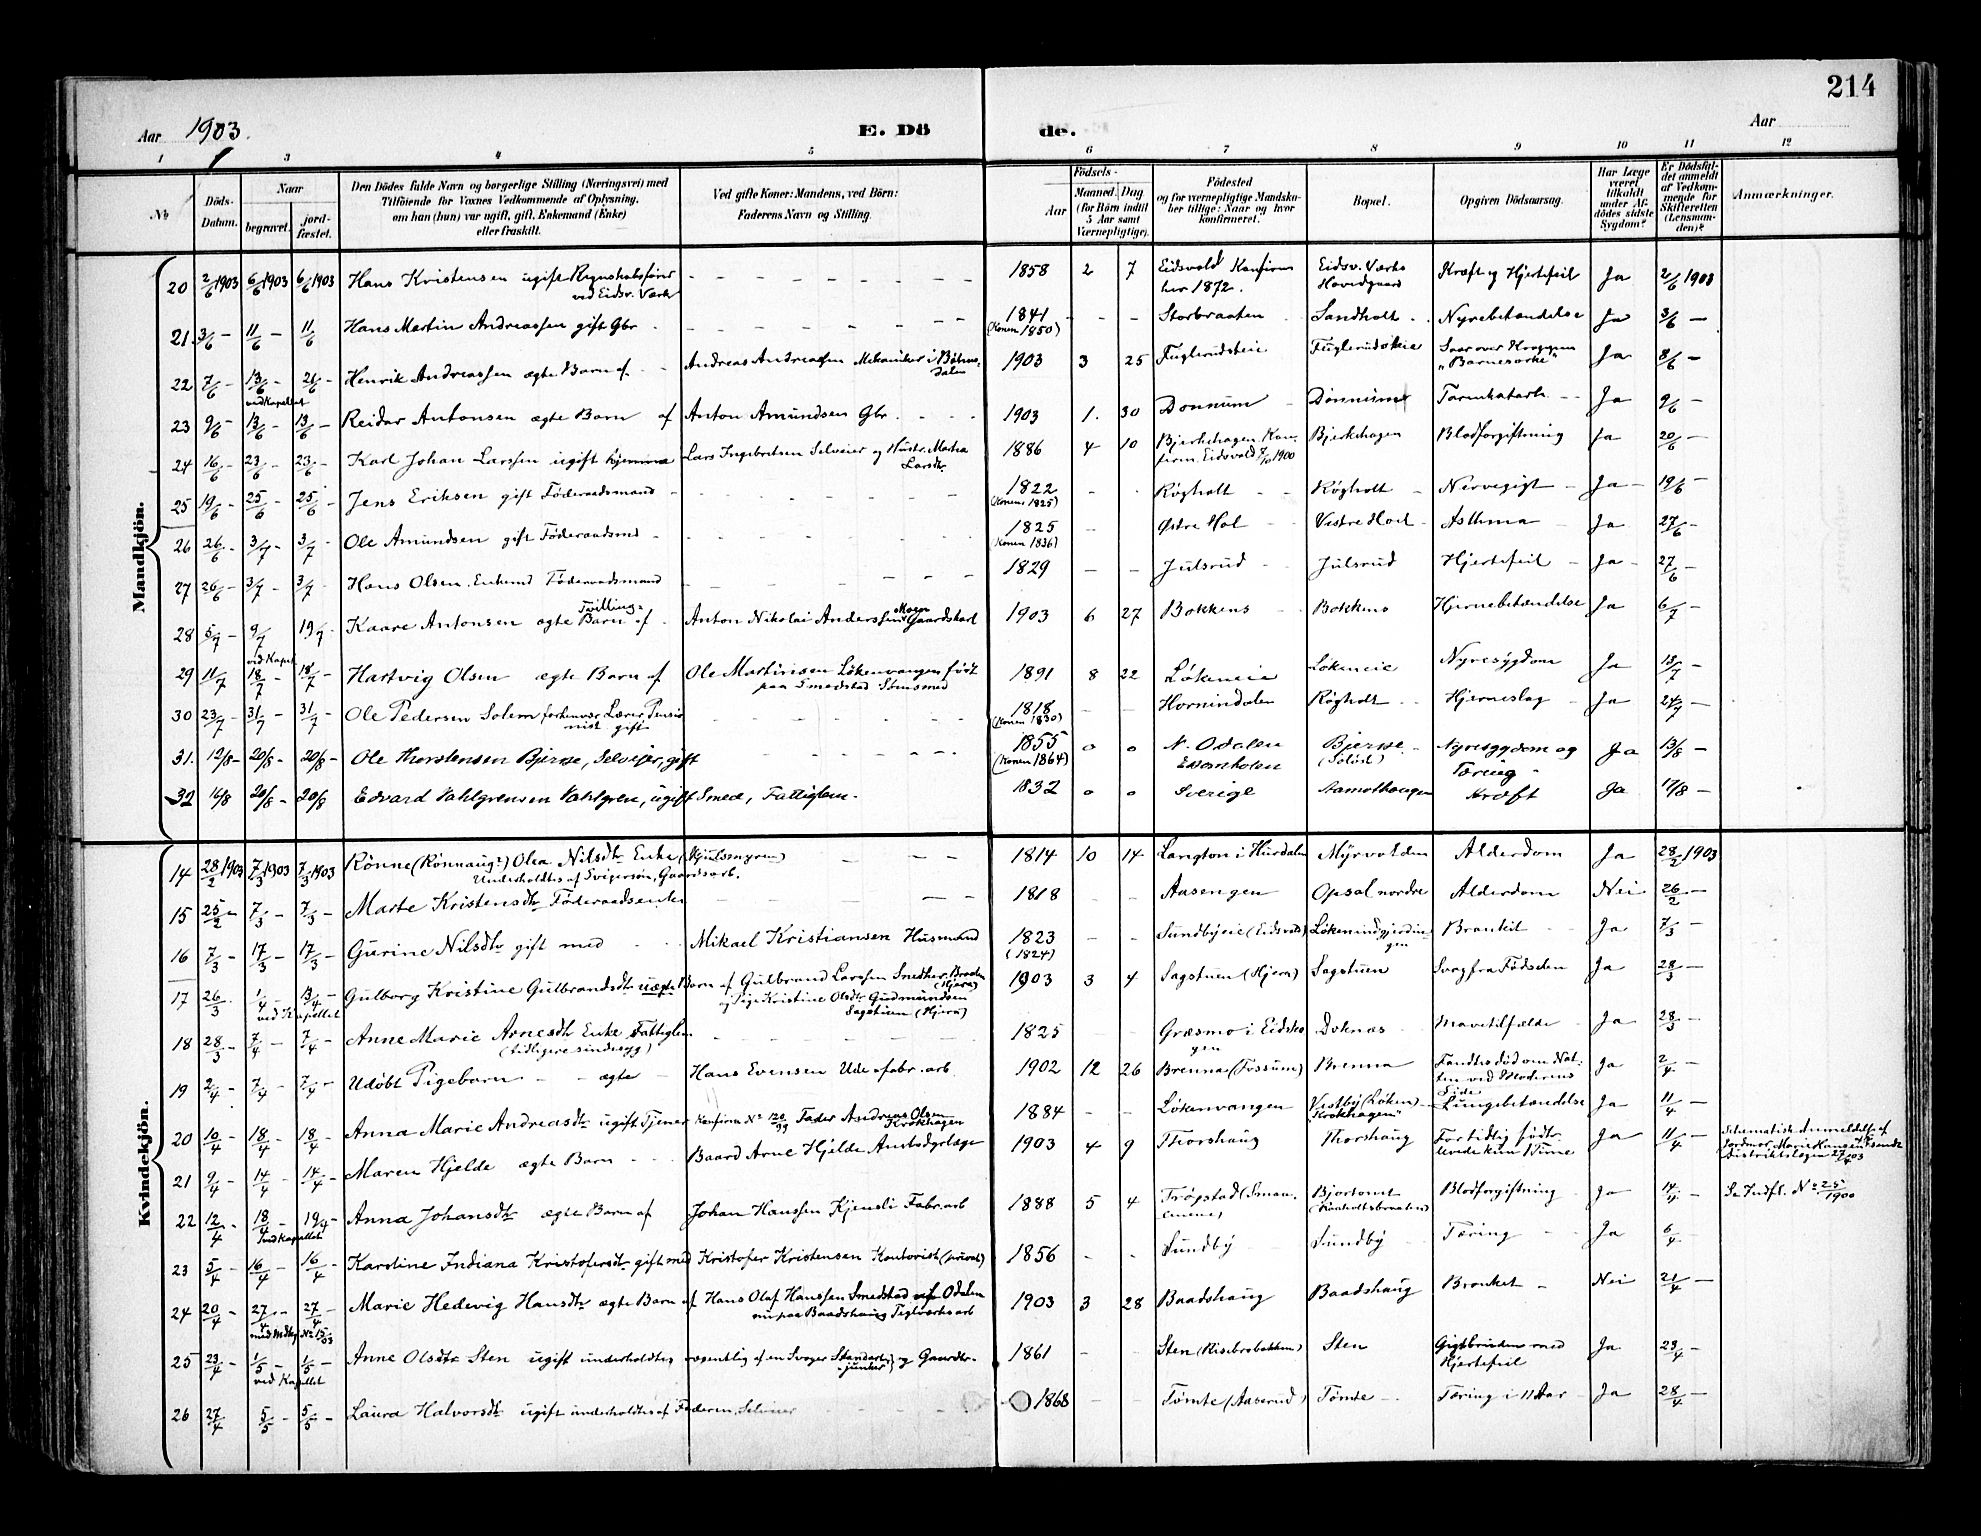 214
Aar 1903.
E. Dö de.
Aar
1 3 4 5 6 7 8 9 10 11 12
No
Döds-Datum.
Naar
begravet.
jord-fæstet.
Den Dödes fulde Navn og borgerlige Stilling (Næringsvei) med
Tilföiende for Voxnes Vedkommende af Oplysning,
om han (hun) var ugift, gift, Enkemand (Enke)
eller fraskilt.
Ved gifte Koner: Mandens, ved Börn:
Faderens Navn og Stilling.
Födsels-
Aar
Maaned. Dag
(for Börn indtil
5 Aar samt
Værnepligtige).
Födested
og for værnepligtige Mandska-
ber tillige: Naar og hvor
konfirmeret.
Bopæl.
Opgiven Dödsaarsag.
Har Læge
været
tilkaldt
under Af-
dödes sidste
Sygdom?
Er Dödsfal-
det anmeldt
af Vedkom-
mende for
Skifteretten
(Lensman-
den)?
Anmærkninger.
Mandkjön.
20 2/6 1903 6/6 1903 6/6 1903 Hans Kristensen ugift Regnskabsfører - - - 1858 2 7 Eidsvold Konfirm Eidsv. Værks Kræft og Hjertefeil Ja 2/6 1903
ved Eidsv. Værk her 1872. Hovedgaard
21. 3/6 - 11/6 11/6 Hans Martin Andreassen gift Gbr. - - - 1841 - - Storbraaten Sandholt Nyrebetændelse Ja 3/6 -
(Konen 1850)
22 7/6 - 13/6 - 21/6 - Henrik Andreassen ægte Barn af Andreas Andreassen Mekaniker i Bøhns- 1903 3 25 Fuglerudseie Fuglerudseie Svar over Kroppen Ja 8/6 -
ved Kapellet dalen "Barneværke"
23 9/6 - 13/6 - 13/6 - Reidar Antonsen ægte Barn af Anton Amundsen Gbr. 1903 1. 30 Donnum Donnum Tarmkatarh Ja 9/6 -
24 16/6 - 23/6 - 23/6 - Karl Johan Larssen ugift hjemme Lars Ingebretsen Selveier og Hustr. Martha 1886 4 10 Bjerkehagen Kon- Bjerkehagen Blodforgiftning Ja 20/6 -
Larsdtr. firm. Eidsvold 7/10 1900
25 19/6 - 25/6 - 25/6 - Jens Eriksen gift Føderaadsmand - 1822 - - Røgholt Røgholt Nervegigt Ja 19/6 -
(Konens 1825)
26 26/6 - 3/7 - 3/7 - Ole Amundsen gift Føderaadsmd 1825 - Østre Hol Vestre Hol Asthma Ja 27/6 -
(Konen 1836)
27 26/6 - 3/7 - 3/7 - Hans Olsen Enkemd Føderaadsmand - 1829 - - Julsrud Julsrud Hjertefeil Ja 27/6 -
28 5/7 - 9/7 19/7 - Kaare Antonsen ægte Tvilling- Barn af Anton Nikolai Anderssen Moen Gaardskarl 1903 6 27 Bakkens Bakkens Hjernebetændelse Ja 6/7 -
ved Kapel
29 11/7 18/7 - 18/7 - Hartvig Olsen ægte Barn af Ole Martinisen Løkenvangen født 1891 8 22 Løkeneie Løkeneie Nyresygdom Ja 13/7 -
paa Smedstad Stensmed
30 23/7 - 31/7 - 31/7 - Ole Pedersen Solem forhenvær. Lærer Pensio- 1818 - - Hornindalen Røgholt Hjerneslag Ja 24/7 -
nist gift (Konen 1830)
31. 12/8 - 20/8 - 20/8 - Ole Thorstensen Bjerke, Selveier, gift 1855 0 0 N. Odalen Bjerke Nyresygdom og Ja 13/8 -
(Konen 1864) Tæring
32 16/8 20/8 - 20/8 Edvard Vahlgrensen Vahlgren, ugift Smed, Fattiglem. 1832 0 0 Sverige Aamothaugen Kræft Ja 17/8 -
Kvindekjön.
14 28/2 1903 7/3 1903 7/3 1903 Rönne (Rönnaug?) Olea Nilsdtr Enke (Hjulsmyren) 1814 10 14 Langton i Hurdalen Myrvolden Alderdom Ja 28/2 1903
Underholdtes af Svigersøn, Gaardsarb.
15 25/2 - 7/3 - 7/3 - Marte Kristensdtr Føderaadsenke 1818 - - Aasengen Opsal nordre Alderdom Nei 26/2 -
16 7/3 - 17/3 - 17/3 - Gurine Nilsdtr gift med Mikael Kristiansen Husmand 1823 - - Sundbyeie (Eidsvold) Løkenindgjerdin- Bronkit Ja 7/3 -
(1824) gen
17 26/3 1/4 - 13/4 - Gulborg Kristine Gulbrandsdtr uægte Barn af Gulbrand Larssen Smedhus Braaten 1903 3 4 Sagstuen (Hjera) Sagstuen Svag fra Fødselen Ja 28/3 -
ved Kapellet og Pige Kristine Olsdtr Gudmundsen
Sagstuen (Hjera)
18 28/3 - 7/4 - 7/4 - Anne Marie Arnesdtr Enke Fattiglem 1825 - - Græsmo i Eidsko- Doknæs Mavetilfælde Ja 28/3 -
(tidligere sindssyg) gen
19 2/4 - 7/4 - 7/4 - Udøbt Pigebarn - ægte - Hans Evensen Ude fabr. arb. 1902 12 26 Brenna (Fossum) Brenna Fandtes død om Nat- Ja 2/4 -
ten ved Moderens
Side
20 10/4 - 18/4 - 18/4 - Anna Marie Andreasdtr ugift Tjener Konfirm No 120/99 Fader Andreas Olsen 1884 - - Løkenvangen Vestby (Løken) Lungebetændelse Ja 11/4 -
Krokhagen "Krokhagen"
21 9/4 - 14/4 - 14/4 - Maren Hjelde ægte Barn - Baard Arne Hjelde Amtsdyrlæge 1903 4 9 Thorshaug Thorshaug For tidlig født Ja 11/4 - Schematisk Anmeldelse af
levede kun 1 Time Jordmor Marie Hansen til sendt
Distriktslægen 27/4 03
22 12/4 - 18/4 - 19/4 - Anna Johansdtr ægte Barn af Johan Hanssen Kjensli Fabr. arb 1888 5 4 Trøgstad (Smaa- Bjortomt Blodforgiftning Ja 14/4 - Se Indfl. No 25/1900
ved Kapellet enene)
23 5/4 - 16/4 - 16/4 - Karoline Indiana Kristofersdtr gift med Kristofer Kristensen Kontorist (privat) 1856 - - Sundby Sundby Tæring Ja 6/4 -
24 20/4 - 27/4 - 27/4 - Marie Hedevig Hansdtr ægte Barn af Hans Olaf Hanssen Smedstad af Odalen 1903 3 28 Baadshaug Baadshaug Bronket Nei 21/4 -
No 15/03 nu paa Baadshaug Teglværksarb
25 23/4 - 1/5 - 1/5 - Anne Olsdtr Sten ugift underholdtes væsentlig af en Svoger Standart- og Gaardbr. 1861 - - Sten (Risebrobakken) Sten Gigtbruden med Ja 23/4 -
ved Kapellet junker Hjertefeil
26 27/4 5/5 - 5/5 - Laura Halvorsdtr ugift underholdtes af Faderen, Selveier 1868 - - Tømte (Aaserud) Tømte Tæring i 11 Aar Ja 28/4 -